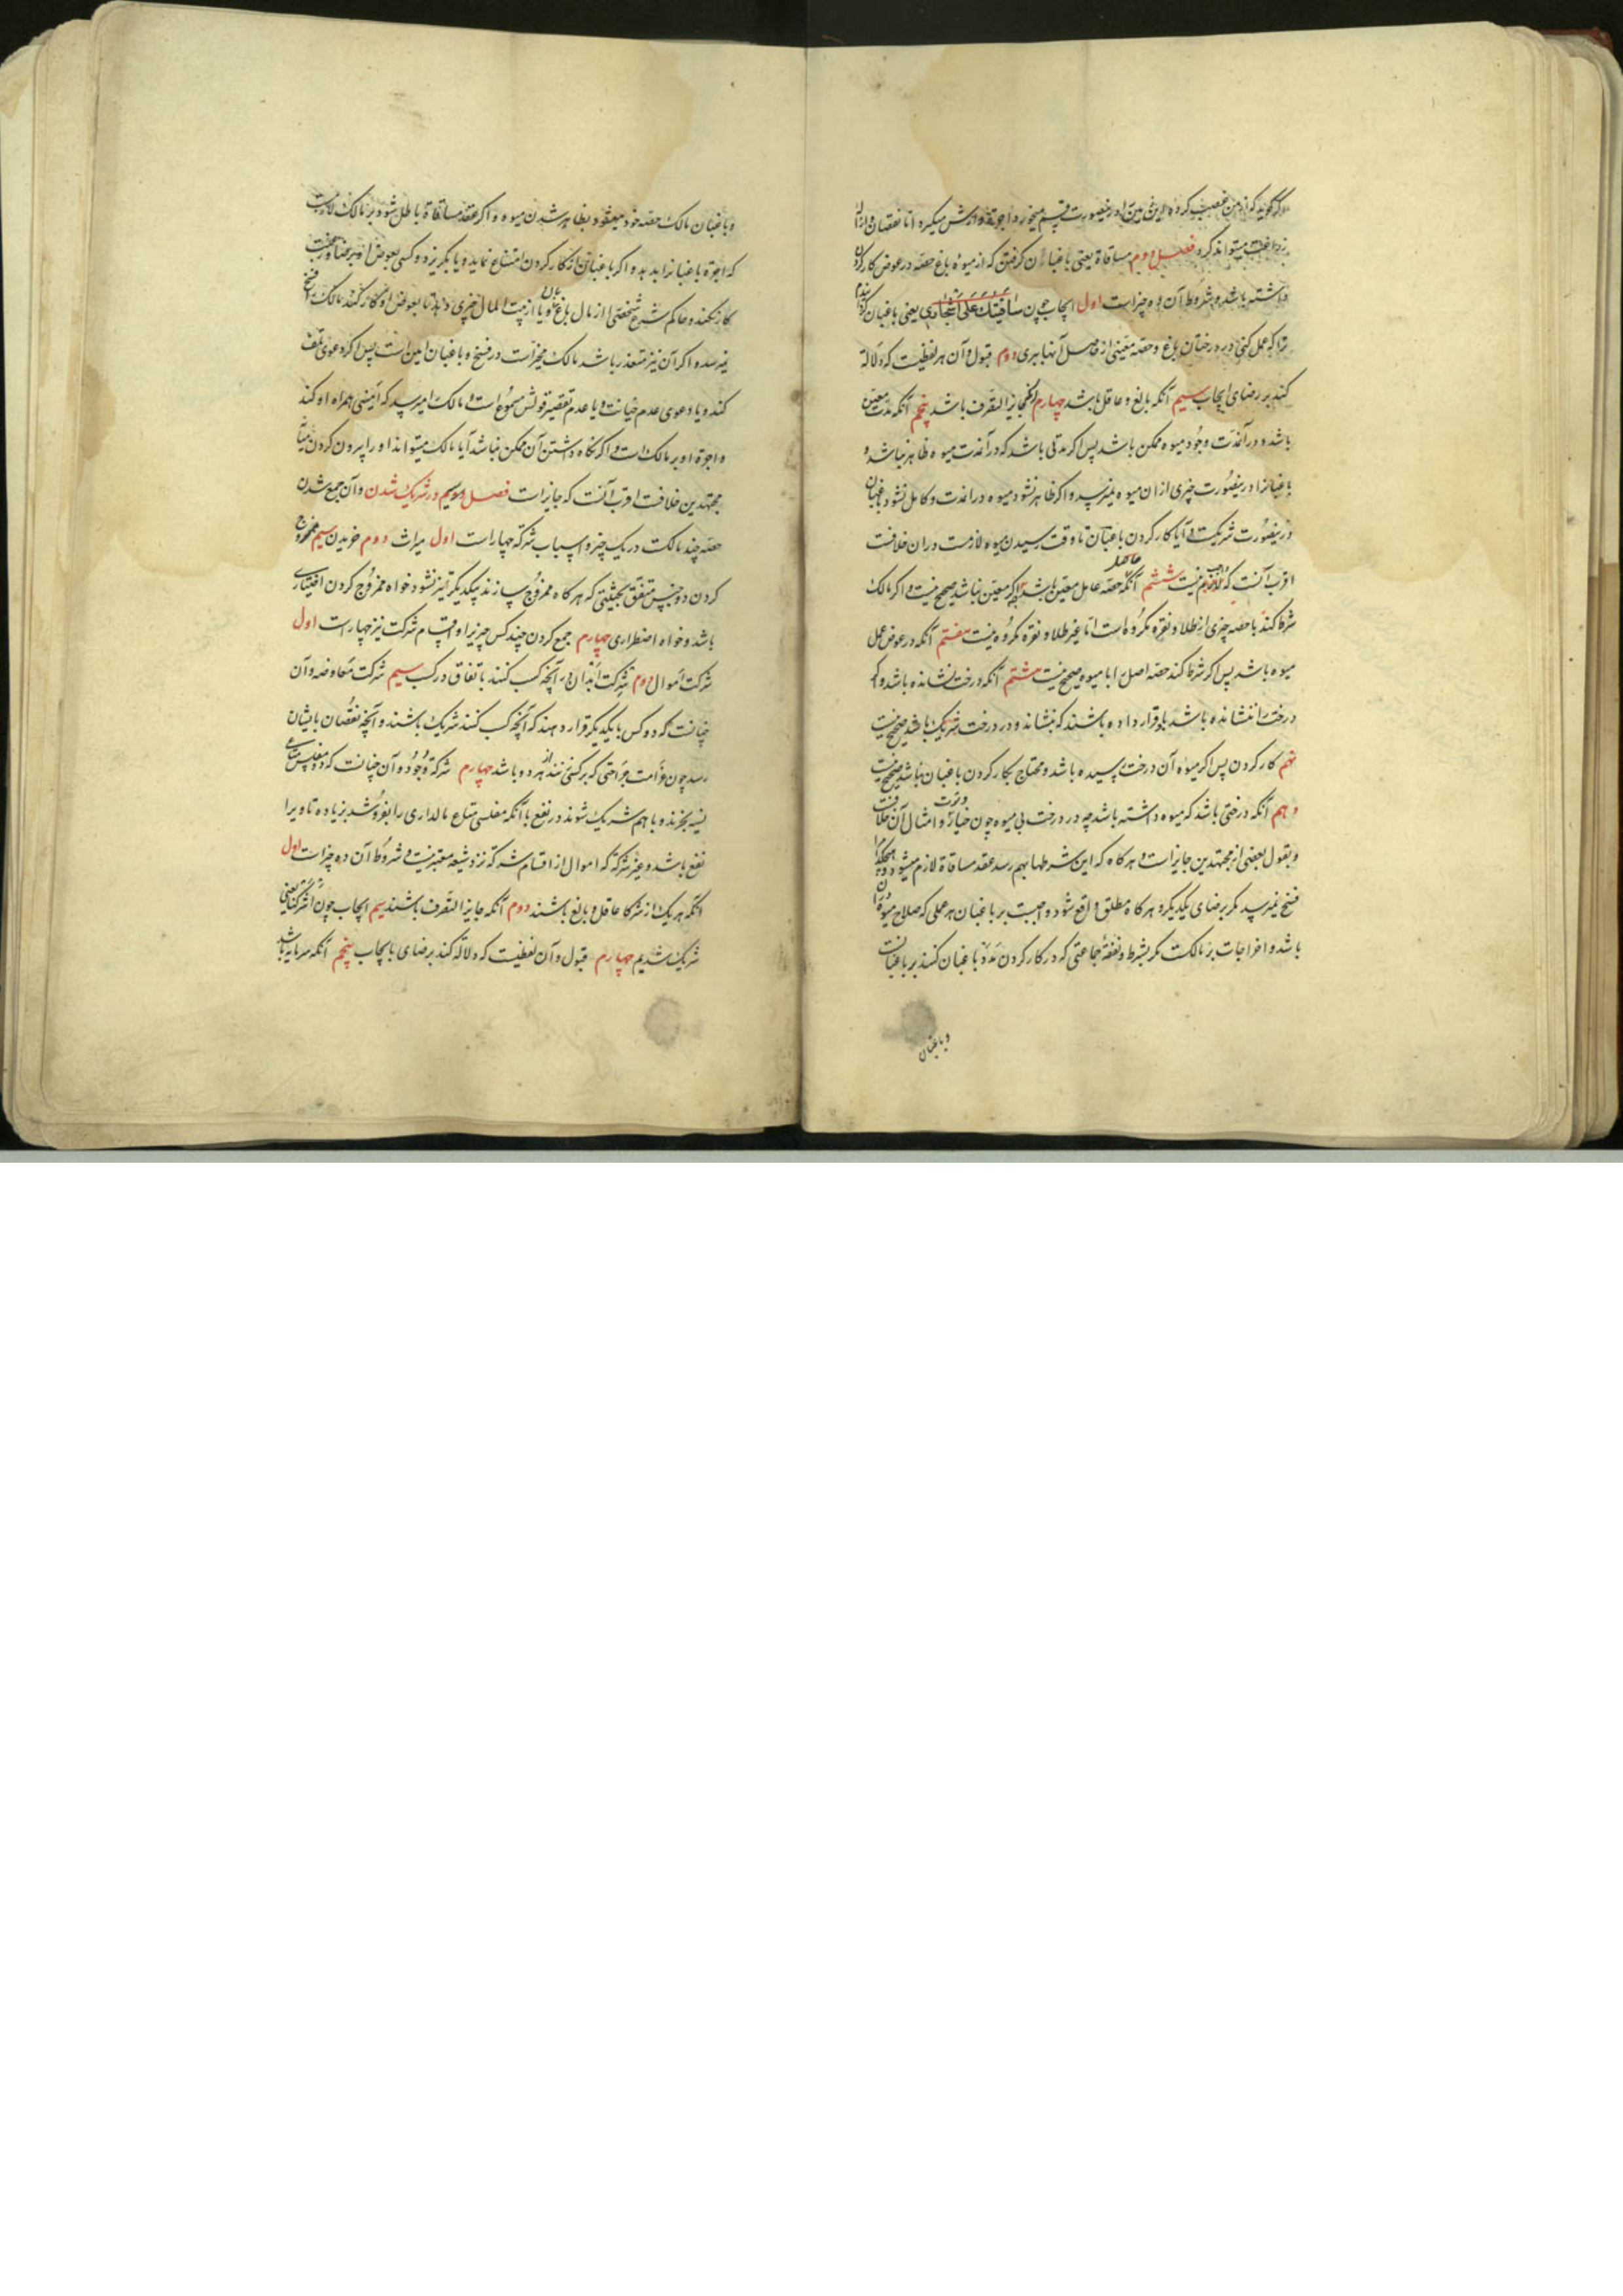 و اگر گوید که از من غصب کرده این زمین را درینصورت قسم میخورد و اجرة و ارش میگیرد اما نقصان و ازاله
زراعت میتواند کرد فصل دوم مساقاة یعنی باغبان گرفتن که از میوه باغ حصه در عوض کار کردن
داشته باشد و شروط آن ده چیز است اول ایجاب چون ساقیتک علی اشجاری یعنی باغبان کردم
ترا که عمل کنی در درختان باغ و حصه معینی از حاصل آنها ببری دوم قبول و آن هر لفظیست که دلالة
کند بر رضای ایجاب سیم آنکه بالغ و عاقل باشد چهارم آنکه جایز التصرف باشد پنجم آنکه مدت معین
باشد و در آنمدت وجود میوه ممکن باشد پس اگر مدتی باشد که در آنمدت میوه ظاهر نباشد و
باغبانرا درینصورت چیزی ازان میوه نمیرسد و اگر ظاهر نشود میوه درانمدت و کامل نشود باغبان
درینصورت شریکست و آیا کار کردن باغبان تا وقت رسیدن میوه لازمست دران خلافست
اقرب آنست که لازم نیست ششم آنکه حصه عامل معین باشد چه اگر معین نباشد صحیح نیست و اگر مالک
شرط کند با حصه چیزی از طلا و نقره مکروه است اما غیر طلا و نقره مکروه نیست هفتم آنکه در عوض عمل
میوه باشد پس اگر شرط کند حصه اصل را با میوه صحیح نیست هشتم آنکه درخت نشانده باشد و اگر
درخت را ننشانده باشد یا قرار داده باشند که بنشاند و در درخت شریک باشد صحیح نیست
نهم کار کردن پس اگر میوه آن درخت رسیده باشد و محتاج بکار کردن باغبان نباشد صحیح نیست
دهم آنکه درختی باشد که میوه داشته باشد چه در درخت بی میوه چون خیار و امثال آن خلافست
و بقول بعضی از مجتهدین جایز است و هرگاه که این شرطها بهم رسد عقد مساقاة لازم میشود و هیچکدام
فسخ نمیرسد مگر برضای یکدیگر و هرگاه مطلق واقع شود واجبست بر باغبان هر عملی که صلاح میوه دران
باشد و اخراجات بر مالکست مگر بشرط و نفقه جماعتی که در کار کردن مدد باغبان کنند بر باغبانست
و باغبان
و باغبان مالک حصه خود میشود بظاهر شدن میوه و اگر عقد مساقاة باطل شود بر مالک لازمست
که اجرة باغبانرا بدهد و اگر باغبان از کار کردن امتناع نماید و یا بگریزد و کسی بعوض او برضا و رغبت
کار نکند و حاکم شرع شخصی از مال باغبان و یا از بیت المال چیزی ندهد تا بعوض او کار کند مالک را فسخ
میرسد و اگر آن نیز متعذر باشد مالک مخیر است در فسخ و باغبان امین است پس اگر دعوی تلف
کند و یا دعوی عدم خیانت و یا عدم تقصیر قولش مسموع است و مالک را میرسد که امینی همراه او کند
و اجرة او بر مالک است و اگر نگاه داشتن آن ممکن نباشد آیا مالک میتواند او را بیرون کردن میانه
مجتهدین خلافست اقرب آنست که جایز است فصل سیم در شریک شدن و آن جمع شدن
حصه چند مالکست در یک چیز و اسباب شرکة چهار است اول میراث دوم خریدن سیم ممزوج
کردن دو جنس متفق بحیثیتی که هرگاه ممزوج سازند بیکدیگر تمیز نشود خواه ممزوج کردن اختیاری
باشد و خواه اضطراری چهارم جمع کردن چند کس چیزیرا و اقسام شرکت نیز چهار است اول
شرکت اموال دوم شرکت ابدان در آنچه کسب کنند باتفاق در کسب سیم شرکت مفاوضه و آن
چنانست که دو کس با یکدیگر قرار دهند که آنچه کسب کنند شریک باشند و آنچه نقصان بایشان
رسد چون غرامت جراحتی که بر کسی زنند از هر دو باشد چهارم شرکة وجوه و آن چنانست که دو مفلس متاعی
نسیه بخرند و با هم شریک شوند در نفع یا آنکه مفلسی متاع مالداری را بفروشد بزیاده تا ویرا
نفع باشد و غیر شرکة که اموال از اقسام شرکة نزد شیعه معتبر نیست و شروط آن ده چیز است اول
آنکه هر یک از شرکا عاقل و بالغ باشند دوم آنکه جایز التصرف باشند سیم ایجاب چون اشترکنا یعنی
شریک شدیم چهارم قبول و آن لفظیست که دلالة کند بر رضای بایجاب پنجم آنکه سرمایه باشد